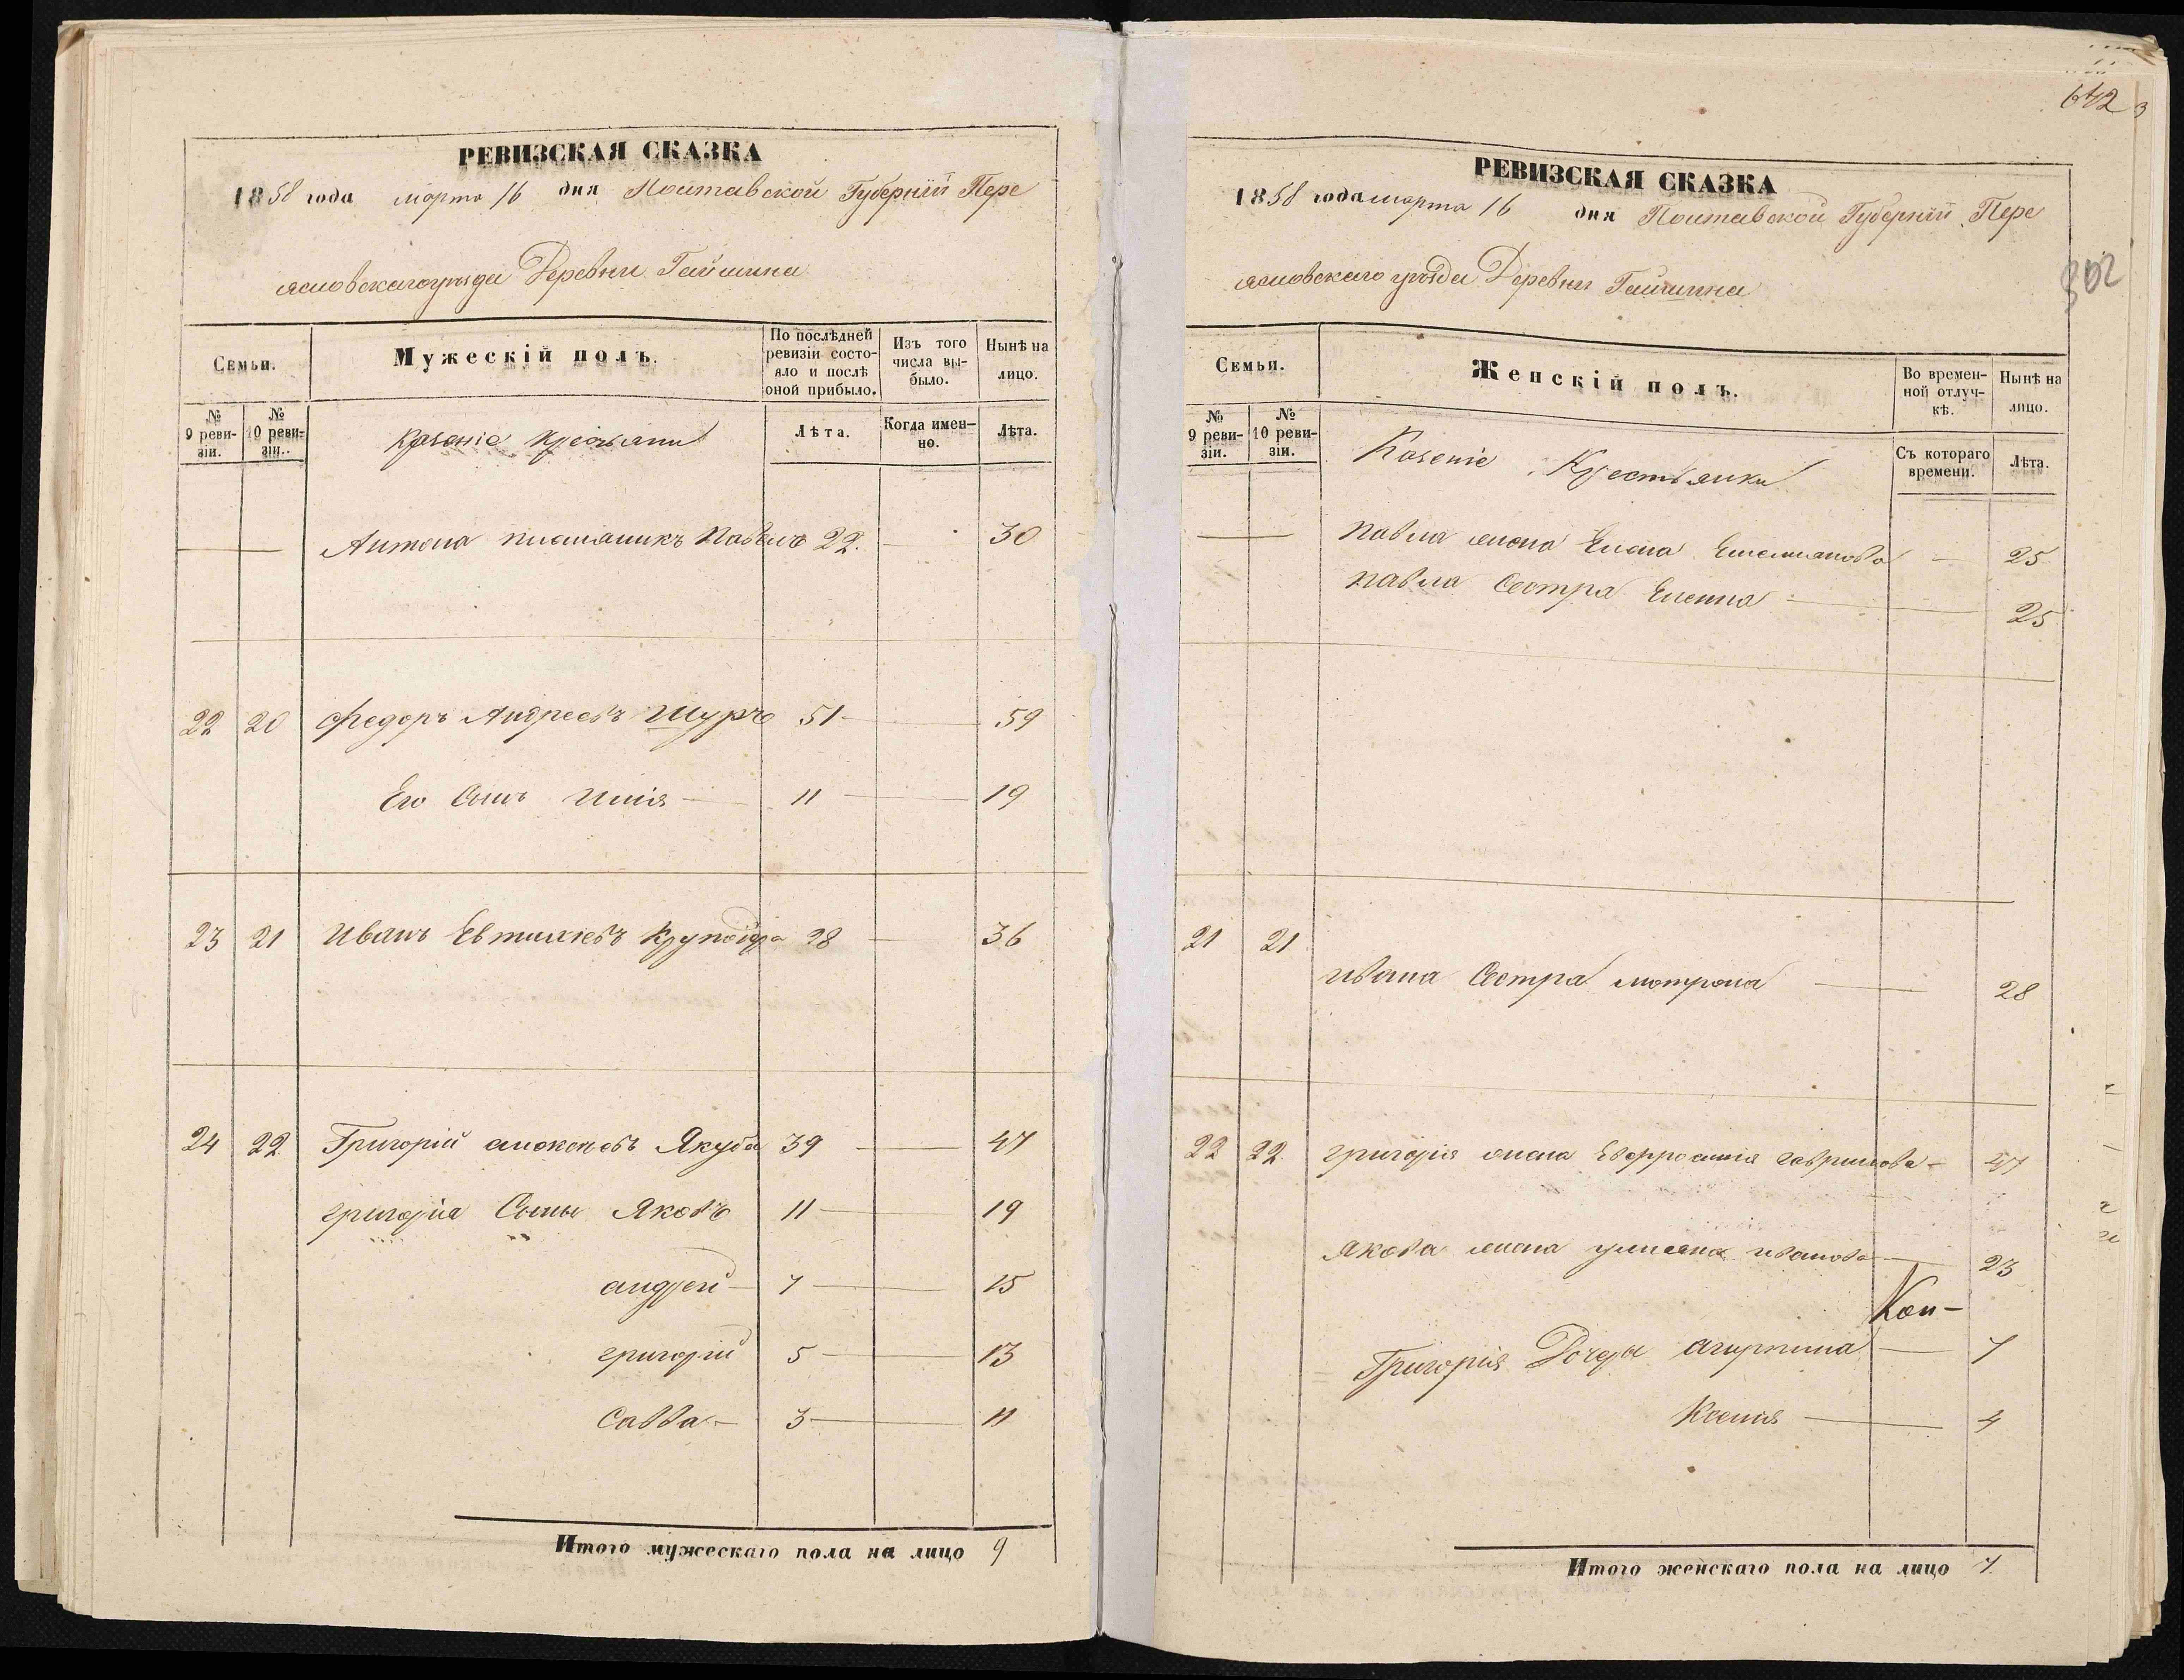 РЕВИЗСКАЯ СКАЗКА
1858 года марта 16 дня Полтавской Губерніи Пере
яславскаго уезда Деревни Гайшина
Семьи.
Мужескій полъ.
По послѣдней ревизіи состояло и послѣ оной прибыло.
Изъ того числа выбыло.
Нынѣ на лицо.
№ 9 ревизіи.
№ 10 ревизіи.
Казеніе крестьяни
Лѣта.
Когда именно.
Лѣта.
Антона племяникъ Павелъ 22. — 30
22 20 Федоръ Андреевъ Шуръ 51 — 59
Его Сынъ Илія — 11 — 19
23 21 Иванъ Евтихіевъ Круподѣра 28 — 36
24 22 Григорій алексѣевъ Якуба 39 — 47
григорія Сыны Яковъ 11 — 19
андрей — 7 — 15
григорій 5 — 13
Савва — 3 — 11
Итого мужескаго пола на лицо 9
642
802
РЕВИЗСКАЯ СКАЗКА
1858 года марта 16 дня Полтавской Губерніи Пере
яславскаго уезда Деревни Гайшина
Семьи.
Женскій полъ.
Во временной отлучкѣ.
Нынѣ на лицо.
№ 9 ревизіи.
№ 10 ревизіи.
Казеніе Крестьянки
Съ котораго времени.
Лѣта.
Павла жена Елена Емельянова — 25
Павла Сестра Елена — 25
21 21
ивана Сестра мотрона — 28
22 22 григорія жена Евфросинія гаврилова — 47
Якова жена улияна иванова — 23
Кон-
Григорія Дочери агирпина — 7
Ксенія — 4
Итого женскаго пола на лицо 7